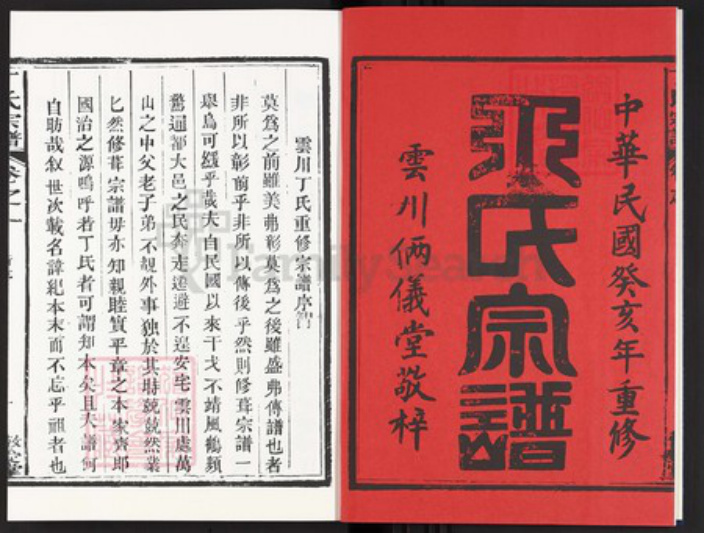 中華民國癸亥年重修
氏宗譜
雲川倆儀堂敬梓
雲川丁氏重修宗譜序
莫為之前雖美弗彰莫為之後雖盛弗傳譜也者
非所以彰前乎非所以傳後乎然則修葺宗譜一
舉烏可緩乎哉夫自民國以來干戈不靖風鶴頻
驚通都大邑之民奔走避不遑安宅雲川處萬
山之中父老子弟不覩外事独於其時兢兢然業
匕然修葺宗譜毋亦知親睦實平章之本家齊即
國治之源嗚呼若丁氏者可謂知本矣且夫譜何
自昉哉叙世次載名諱紀本末而不忘乎祖者也
氏宗譜
卷之一